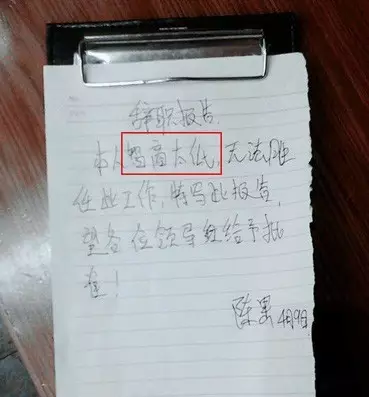 辞职报告
本人智商太低，无法胜
任此工作，特写此报告，
望各位领导给予批
准！
陈果 4月9日